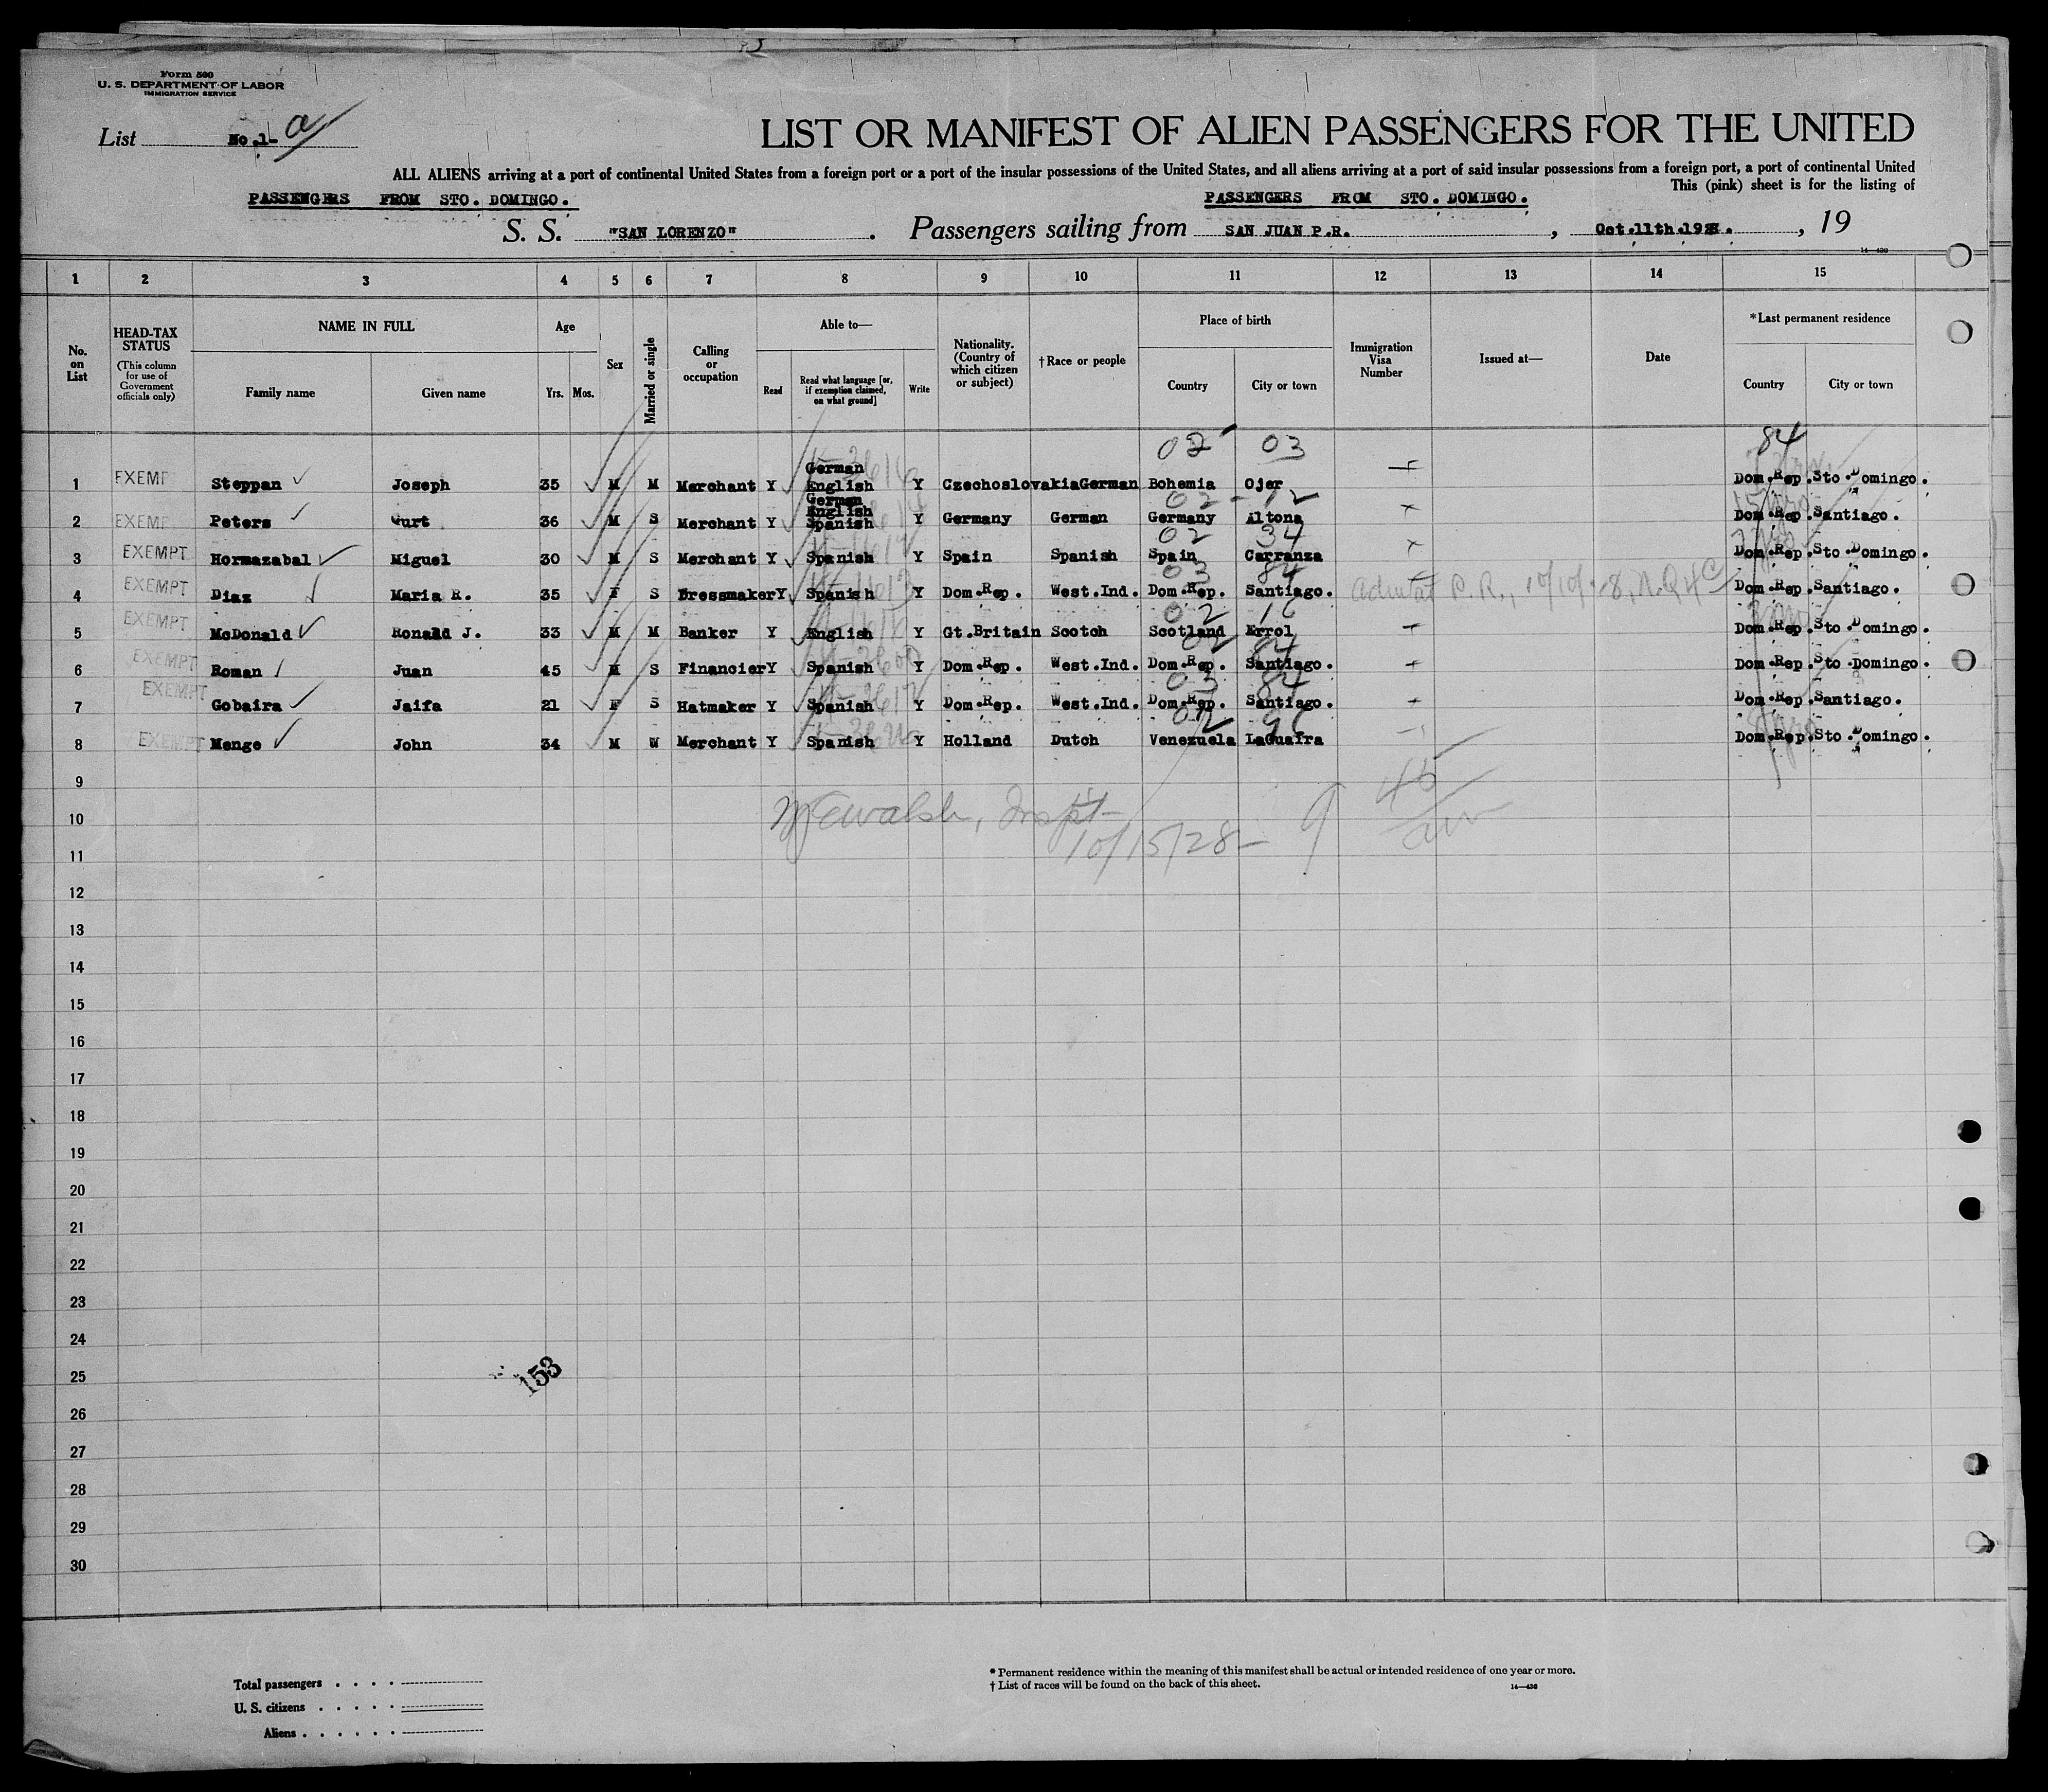 Form 500
U. S. DEPARTMENT OF LABOR
IMMIGRATION SERVICE
List No.1- a
LIST OR MANIFEST OF ALIEN PASSENGERS FOR THE UNITED
ALL ALIENS arriving at a port of continental United States from a foreign port or a port of the insular possessions of the United States, and all aliens arriving at a port of said insular possessions from a foreign port, a port of continental United
This (pink) sheet is for the listing of
PASSENGERS FROM STO. DOMINGO. PASSENGERS FROM STO. DOMINGO.
S. S. "SAN LORENZO" . Passengers sailing from SAN JUAN P.R. , Oct.11th.1928. , 19
14—430
1 2 3 4 5 6 7 8 9 10 11 12 13 14 15
No. on List
HEAD-TAX STATUS
(This column for use of Government officials only)
NAME IN FULL
Family name Given name
Age
Yrs. Mos.
Sex
Married or single
Calling or occupation
Able to—
Read
Read what language [or, if exemption claimed, on what ground]
Write
Nationality. (Country of which citizen or subject)
†Race or people
Place of birth
Country City or town
Immigration Visa Number
Issued at—
Date
*Last permanent residence
Country City or town
02 03 84
German
1 EXEMP Steppan Joseph 35 M M Merchant Y English Y Czechoslovakia German Bohemia Ojer Dom.Rep. Sto.Domingo.
German
English
02 - 12
2 EXEMP Peters Curt 36 M S Merchant Y Spanish Y Germany German Germany Altona Dom.Rep. Santiago.
02 34
3 EXEMPT Hormazabal Miguel 30 M S Merchant Y Spanish Y Spain Spanish Spain Carranza Dom.Rep. Sto.Domingo.
03 84
4 EXEMPT Diaz Maria R. 35 F S Dressmaker Y Spanish Y Dom.Rep. West.Ind. Dom.Rep. Santiago. P.R., Dom.Rep. Santiago.
02 16
5 EXEMPT McDonald Ronald J. 33 M M Banker Y English Y Gt.Britain Scotch Scotland Errol Dom.Rep. Sto.Domingo.
02 84
6 EXEMPT Roman Juan 45 M S Financier Y Spanish Y Dom.Rep. West.Ind. Dom.Rep. Santiago. Dom.Rep. Sto.Domingo.
03 84
7 EXEMPT Gobaira Jaifa 21 F S Hatmaker Y Spanish Y Dom.Rep. West.Ind. Dom.Rep. Santiago. Dom.Rep. Santiago.
02 96
8 EXEMPT Menge John 34 M W Merchant Y Spanish Y Holland Dutch Venezuela LaGuaira Dom.Rep. Sto.Domingo.
9
10 Walsh, Inspt-
11 10/15/28-
12
13
14
15
16
17
18
19
20
21
22
23
24
25 153
26
27
28
29
30
Total passengers . . . .
U. S. citizens . . . . .
Aliens . . . . . .
* Permanent residence within the meaning of this manifest shall be actual or intended residence of one year or more.
† List of races will be found on the back of this sheet. 14—430